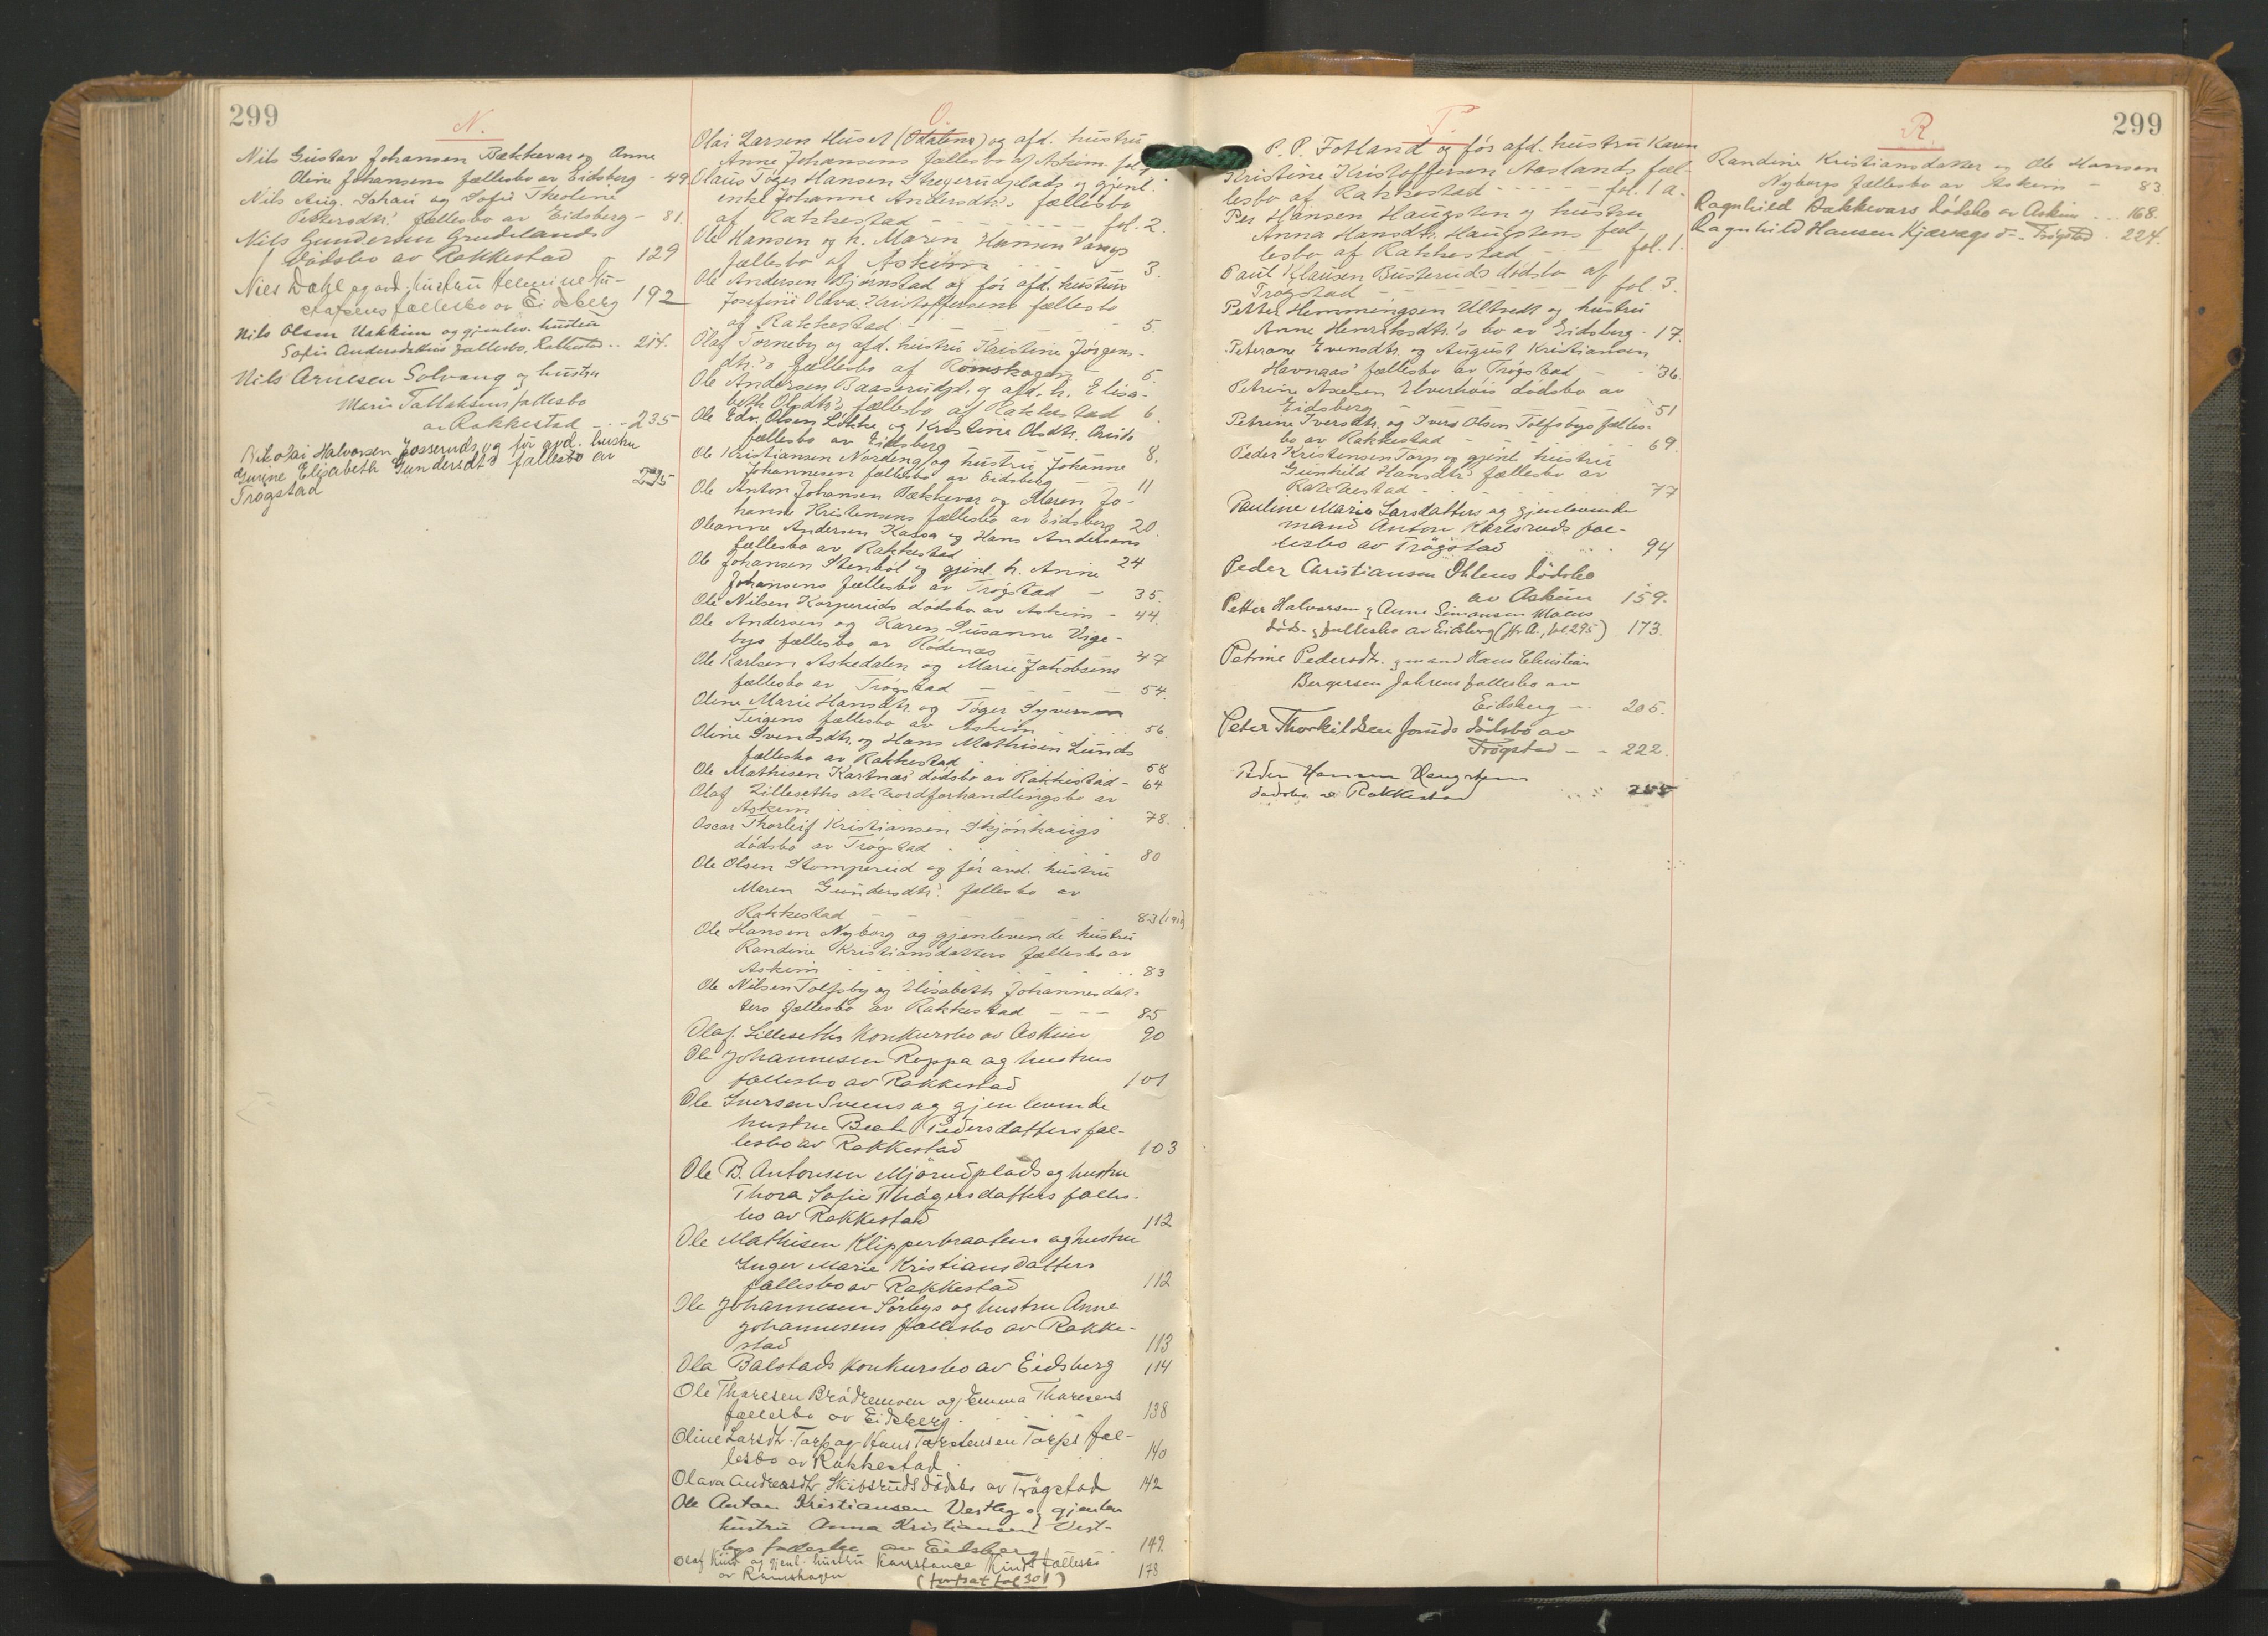 299
N.
Nils Gustav Johansen Bækkevar og Anne
Oline Johansens fællesbo av Eidsberg - 49.
Nils Aug. Johan og Sofie Theoline
Pettersdtr's fællesbo av Eidsberg - 81.
Nils Gundersen Grudelands
Dødsbo av Rakkestad - 129
Niels Dahl og avd. hustru Helmine Gu-
fællesbo av Eidsberg 192
Nils Olsen og gjenlev. hustru
Sofie Andersdatters fællesbo, Rakkestad .. 214.
Nils Arnesen Solvang og hustru
Marie fællesbo
av Rakkestad - .. 235
Nikolai Halvorsen Josseruds og før avd. hustru
Gurine Elisabeth Gundersdtr's fællesbo av
Trøgstad
O.
Olai Larsen Huset (Odalens) og afd. hustru
Anne Johansens fællesbo af Askim fol. 1
Olaus Tøger Hansen og gjenl.
enke Johanne Andersdtr's fællesbo
af Rakkestad - - - - - fol. 2.
Ole Hansen og h. Maren Hansen Vangs
fællesbo af Askim 3.
Ole Andersen Bjørnstad og før afd. hustru
Josefine Olava Kristoffersens fællesbo
af Rakkestad - 5.
Olaf Torneby og afd. hustru Kristine Jørgens-
dtr's fællesbo af Rømskogen - 5.
Ole Andersen Baaserudpl. og afd. h. Elisa-
beth Olsdtr's fællesbo af Rakkestad 6.
Ole Edv. Olsen Løkke og Kristine Olsdtr.
fællesbo av Eidsberg 8.
Ole Kristiansen Nordeng og hustru Johanne
Johannesen fællesbo av Eidsberg - - 11
Ole Anton Johansen Bækkevar og Maren Jo-
hanne Kristensens fællesbo av Eidsberg 20.
Oleanne Andersen Kaasa og Hans Andersens
fællesbo av Rakkestad 24
Ole Johansen Stenbøl og gjenl. h. Anne
Johansens fællesbo av Trøgstad - 35.
Ole Nilsen Korperuds dødsbo av Askim - 44.
Ole Andersen og Karen Susanne Vige-
bys fællesbo av Rødenæs 47
Ole Karlsen Askedalen og Marie Jakobsens
fællesbo av Trøgstad - - - 54.
Oline Marie Hansdtr. og Tøger Syversen
Teigens fællesbo av Askim 56.
Oline Svendsdtr. og Hans Mathisen Lunds
fællesbo av Rakkestad 58
Ole Mathisen Kartnæs dødsbo av Rakkestad - 64
Olaf Lilleseths akkordforhandlingsbo av
Askim 78.
Oscar Thorleif Kristiansen Skjønhaugs
dødsbo av Trøgstad 80
Ole Olsen Stomperud og før avd. hustru
Maren Gundersdtr's fællesbo av
Rakkestad 83 (1910)
Ole Hansen Nyborg og gjenlevende hustru
Randine Kristiansdatters fællesbo av
Askim .. 83
Ole Nilsen Tolfsby og Elisabeth Johannesdat-
ters fællesbo av Rakkestad - - - 85
Olaf Lilleseths Konkursbo av Askim 90
Ole Johannesen Roppa og hustrus
fællesbo av Rakkestad 101
Ole Iversen Sveens og gjenlevende
hustru Beate Pedersdatters fæl-
lesbo av Rakkestad 103
Ole B. Antonsen Mjørudplads og hustru
Thora Sofie Thøgersdatters fælles-
bo av Rakkestad 112
Ole Mathisen Klipperbraatens og hustru
Inger Marie Kristiansdatters
fællesbo av Rakkestad 112
Ole Johannesen Sørbys og hustru Anne
Johannesens fællesbo av Rakke-
stad 113
Ola Balstads Konkursbo av Eidsberg 114
Ole Thoresen Brødremoen og Emma Thoresens
fællesbo av Eidsberg 138
Oline Larsdtr. Torp og Hans Torstensen Torps fæl-
lesbo av Rakkestad 140
Olava Andreasdtr. Skibsruds dødsbo av Trøgstad 142
Ole Anton Kristiansen Vestby og gjenlev
hustru Anna Kristiansen Vest-
bys fællesbo av Eidsberg 149.
Olaf Kind og gjenl. hustru Konstance Kinds fællesbo
av Rømskogen 178
(fortsat fol 301)
P.
P. P. Fosland og før afd. hustru Karen
Kristine Kristoffersen Aaslands fæl-
lesbo af Rakkestad - - - - - fol. 1 a.
Per Hansen Haugsten og hustru
Anna Hansdtr. Haugstens fæl-
lesbo af Rakkestad - - fol. 1.
Paul Klausen Busteruds dødsbo af
Trøgstad - - - fol. 3.
Petter Hemmingsen Ultvedt og hustru
Anne Henriksdtr's bo av Eidsberg - 17.
Peterane Evensdtr. og August Kristiansen
Havnaas' fællesbo av Trøgstad - - 36.
Petrine Axelsen Elverhøis dødsbo av
Eidsberg 51
Petrine Iversdtr. og Ivers Olsen Tolfsbys fælles-
bo av Rakkestad 69.
Peder Kristensen Torp og gjenl. hustru
Gunhild Hansdtr's fællesbo av
Rakkestad 77
Pauline Marie Larsdatters og gjenlevende
mand Anton Karlsruds fæl-
lesbo av Trøgstad 94
Peder Christiansen Ihlens dødsbo
av Askim 159.
Petter Halvorsen og Anne Simonsen Moens
døds- og fællesbo av Eidsberg (H.A., fol 295) 173.
Petrine Pedersdtr. og mand Hans Christian
Bergersen Jahrens fællesbo av
Eidsberg - .. 205.
Peter Thorkildsen dødsbo av
Trøgstad - - 222.
Peder Hansen Haugstens
dødsbo av Rakkestad
R.
299
Randine Kristiansdatter og Ole Hansen
Nyborgs fællesbo av Askim - 83.
Ragnhild Bakkevars dødsbo av Askim ... 168.
Ragnhild Hansen Kjæraags d - Trøgstad . 224.